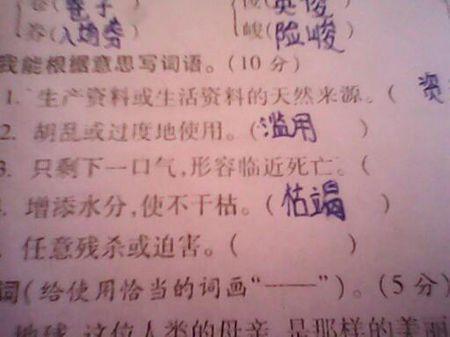 卷(卷子 俊(英俊
券(入场券 峻(险峻
我能根据意思写词语。(10分)
1. 生产资料或生活资料的天然来源。(资
2. 胡乱或过度地使用。(滥用)
3. 只剩下一口气,形容临近死亡。(
. 增添水分,使不干枯。(枯竭)
. 任意残杀或迫害。( )
词(给使用恰当的词画“——”)。(5分)
地球,这位人类的母亲,是那样的美丽